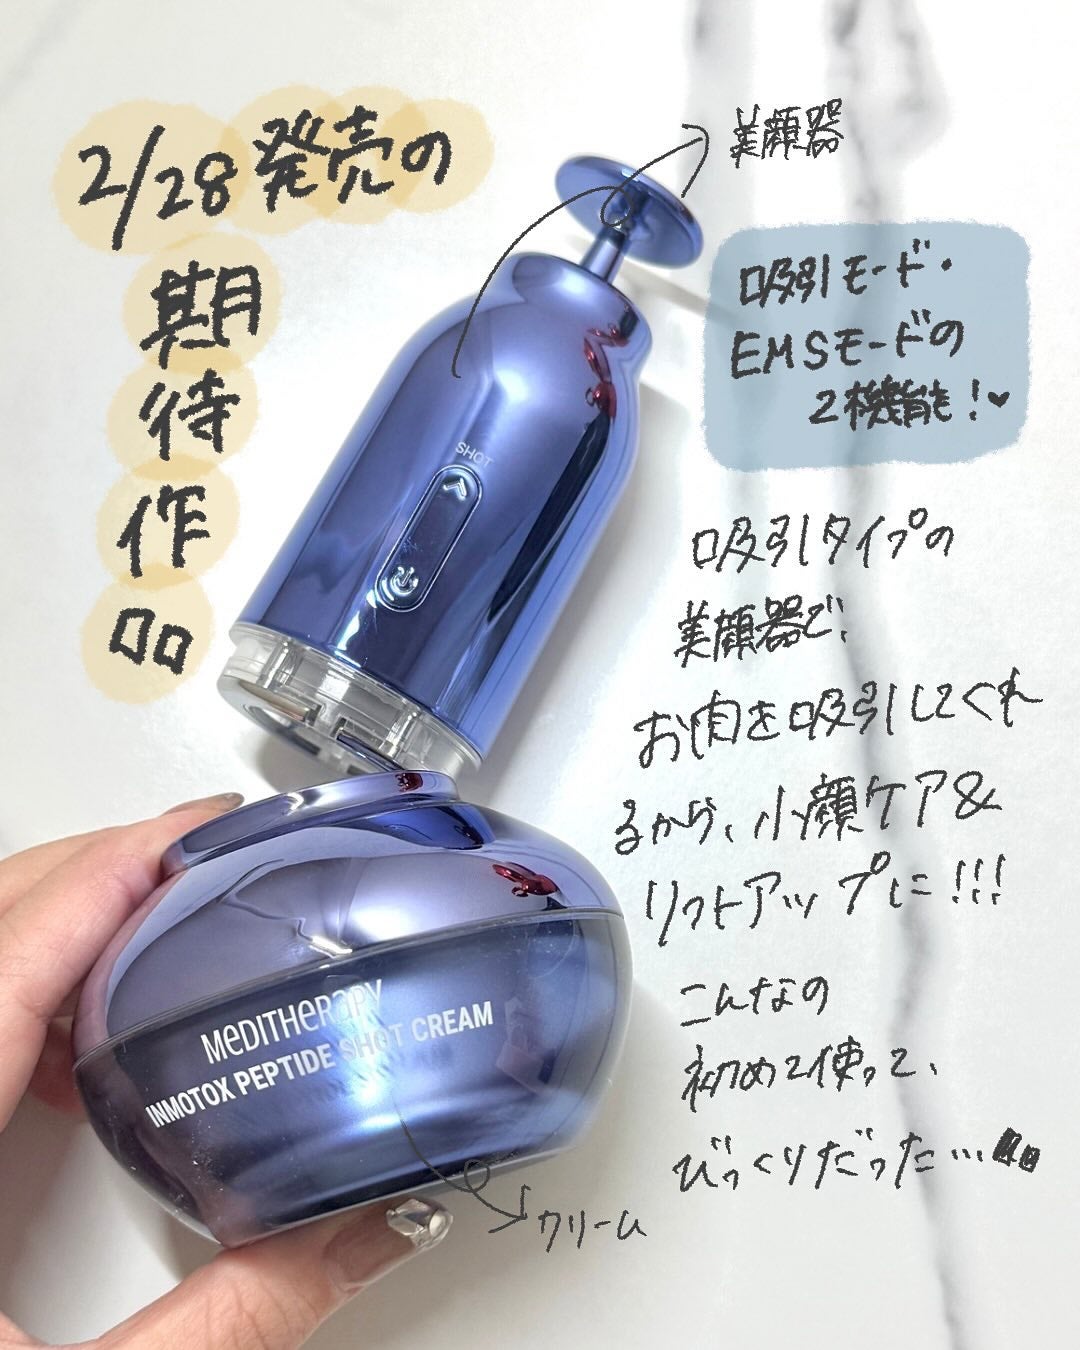 2/28発売の
期
待
作
品
美顔器
吸引モード・
EMSモードの
2機能!♥
SHOT
吸引タイプの
美顔器で、
お肉を吸引してくれ
るから、小顔ケア&
リフトアップに!!!
こんなの
初めて使って、
びっくりだった…
MEDITHERAPY
INMOTOX PEPTIDE SHOT CREAM
クリーム